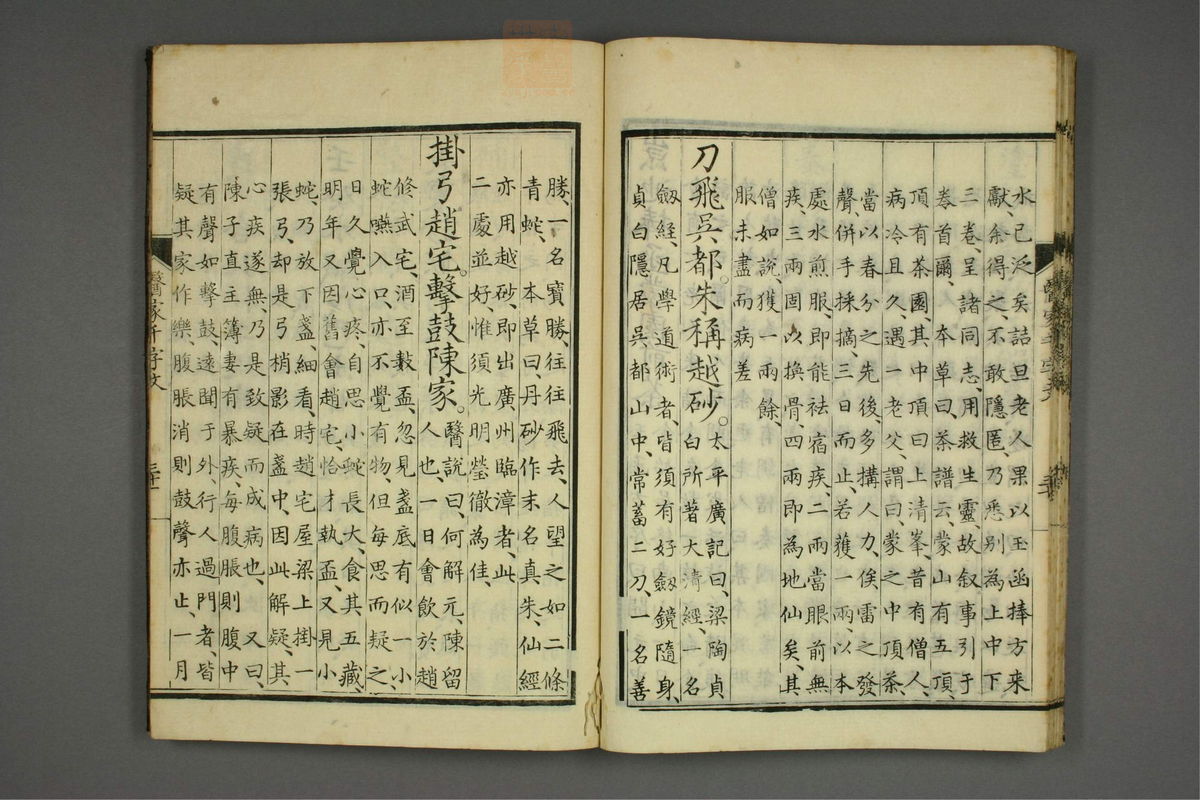 水、已泛矣、詰旦老人果以玉函捧方來
獻、余得之、不敢隱匿、乃悉别為上中下
三卷、呈諸同志、用救生靈、故叙事引于
卷首爾、 本草曰、茶譜云、蒙山有五頂、
頂有茶園、其中頂曰上清峯、昔有僧人、
病冷且久、遇一老父、謂曰、蒙之中頂茶、
當以春分之先後、多搆人力、俟雷之發
聲、併手採摘、三日而止、若獲一兩、以本
處水煎服、即能祛宿疾、二兩當眼前無
疾、三兩固以換骨、四兩即為地仙矣、其
僧如說、獲一兩餘、
服未盡而病差
刀飛吳都。朱稱越砂。太平廣記曰、梁陶貞
白所著大清經、一名
劔經、凡學道術者、皆須有好劔鏡隨身、
貞白隱居吳都山中、常蓄二刀、一名善
勝、一名寶勝、往往飛去、人望之如二條
青蛇、 本草曰、丹砂作末名真朱、仙經
亦用越砂、即出廣州臨漳者、此
二處並好、惟須光明瑩徹為佳、
掛弓趙宅。擊鼓陳家。醫說曰、何解元、陳留
人也、一日會飲於趙
修武宅、酒至數盃、忽見盞底有似一小
蛇、嚥入口、亦不覺有物、但每思而疑之、
日久覺心疼、自思小蛇長大、食其五藏、
明年又因舊會趙宅、恰才執盃、又見小
蛇、乃放下盞細看、時趙宅屋梁上掛一
張弓、却是弓梢影在盞中、因此解疑、其
心疾遂無、乃是致疑而成病也、 又曰、
陳子直主簿妻有暴疾、每腹脹則腹中
有聲如擊鼓、遠聞于外、行人過門者、皆
疑其家作樂、腹脹消則鼓聲亦止、一月
醫家千字文
三十一